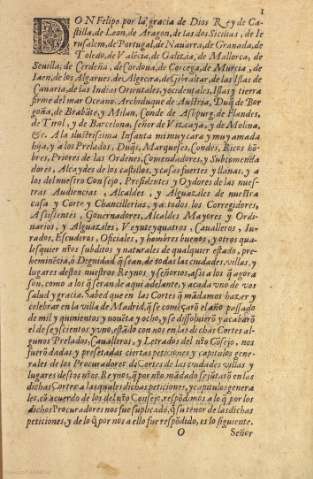 1
DON Felipo, por la gracia de Dios Rey de Ca-
stilla, de Leon, de Aragon, de las dos Sicilias, de Ie
rusalem, de Portugal, de Nauarra, de Granada, de
Toledo, de Valẽcia, de Galizia, de Mallorca, de
Seuilla, de Cerdeña, de Cordoua, de Corcega, de Murcia, de
Iaen, de los Algarues, de Algezira, de Gibraltar, de las Islas de
Canaria, de las Indias Orientales, y ocidentales, Islas y tierra
firme del mar Oceano, Archiduque de Austria, Duq̃ de Bor
goña, de Brabãte, y Milan, Conde de Abspurg, de Flandes,
de Tirol, y de Barcelona, señor de Vizcaya, y de Molina,
&c. A la ilustrissima Infanta mi muy cara y muy amada
hija, y a los Prelados, Duq̃s, Marqueses, Condes, Ricos hõ
bres, Priores de las Ordenes, Comendadores, y Subcomenda
dores, Alcaydes de los castillos, y casas fuertes y llanas, y a
los del nuestro Consejo, Presidentes y Oydores de las nues-
tras Audiencias, Alcaldes, y Alguaziles de nuestra
casa y Corte y Chancillerias, y a todos los Corregidores,
Assistentes, Gouernadores, Alcaldes Mayores y Ordi-
narios, y Alguaziles, Veyntequatros, Caualleros, Iu-
rados, Escuderos, Oficiales, y hombres buenos, y otros qua-
lesquier nr̃os subditos y naturales de qualquier estado, pre-
heminẽcia, ò Dignidad q̃ sean, de todas las ciudades, villas, y
lugares destos nuestros Reynos, y señorios, assi a los q̃ agora
son, como a los q̃ seran de aqui adelante, y a cada vno de vos
salud y gracia. Sabed que en las Cortes q̃ mãdamos hazer y
celebrar en la villa de Madrid, q̃ se començarõ el año passado
de mil y quinientos y nouẽta y ocho, y se dissoluierõ y acabarõ
el de seyscientos y vno, estãdo con nos en las dichas Cortes al-
gunos Prelados, Caualleros, y Letrados del nr̃o Cõsejo, nos
fuerõ dadas y presẽtadas ciertas peticiones y capitulos gene-
rales de los Procuradores de Cortes de las ciudades villas y
lugares destos nr̃os Reynos, q̃ por nr̃o mãdado se jũtarõ en las
dichas Cortes: a las quales dichas peticiones, y capitulos genera
les, cõ acuerdo de los del nr̃o Consejo, respõdimos a lo q̃ por los
dichos Procuradores nos fue suplicado, q̃ su tenor de las dichas
peticiones, y de lo q̃ por nos a ello fue respõdido, es lo siguiente.
O Señor